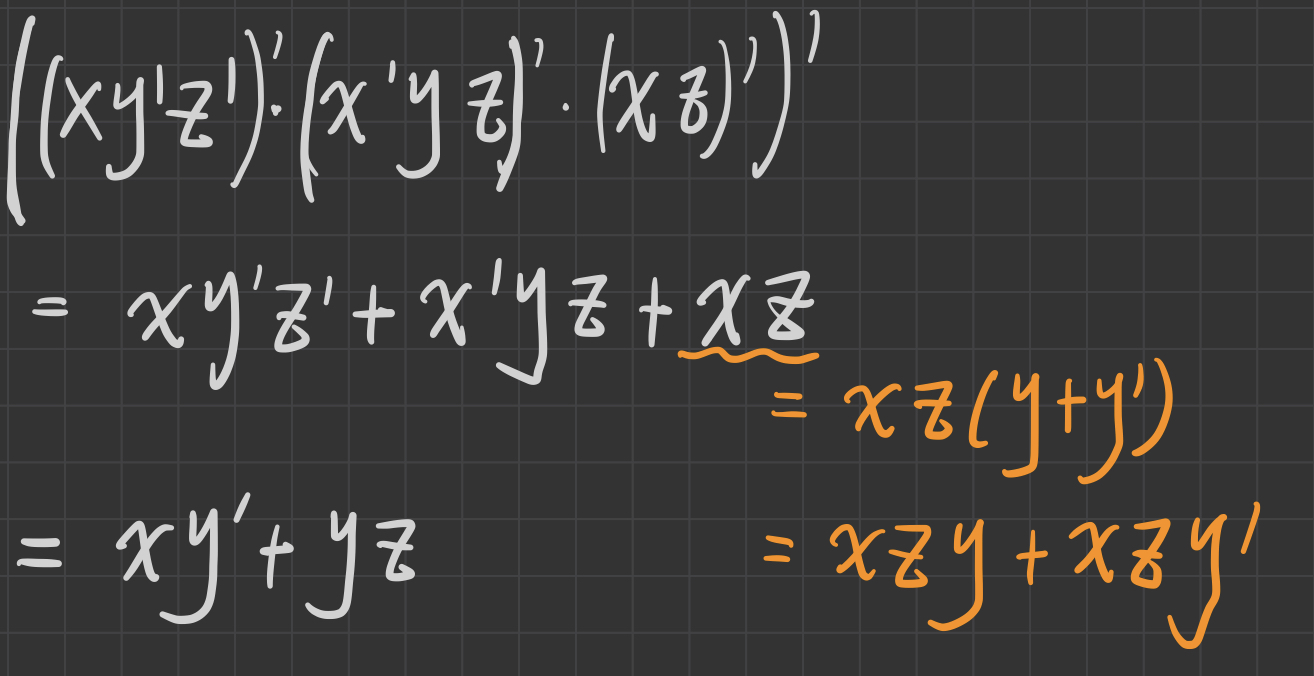 ((xy'z')'·(x'yz)'·(xz)')')'
= xy'z' + x'yz + xz
= xz(y+y')
= xy' + yz
= xzy + xzy'